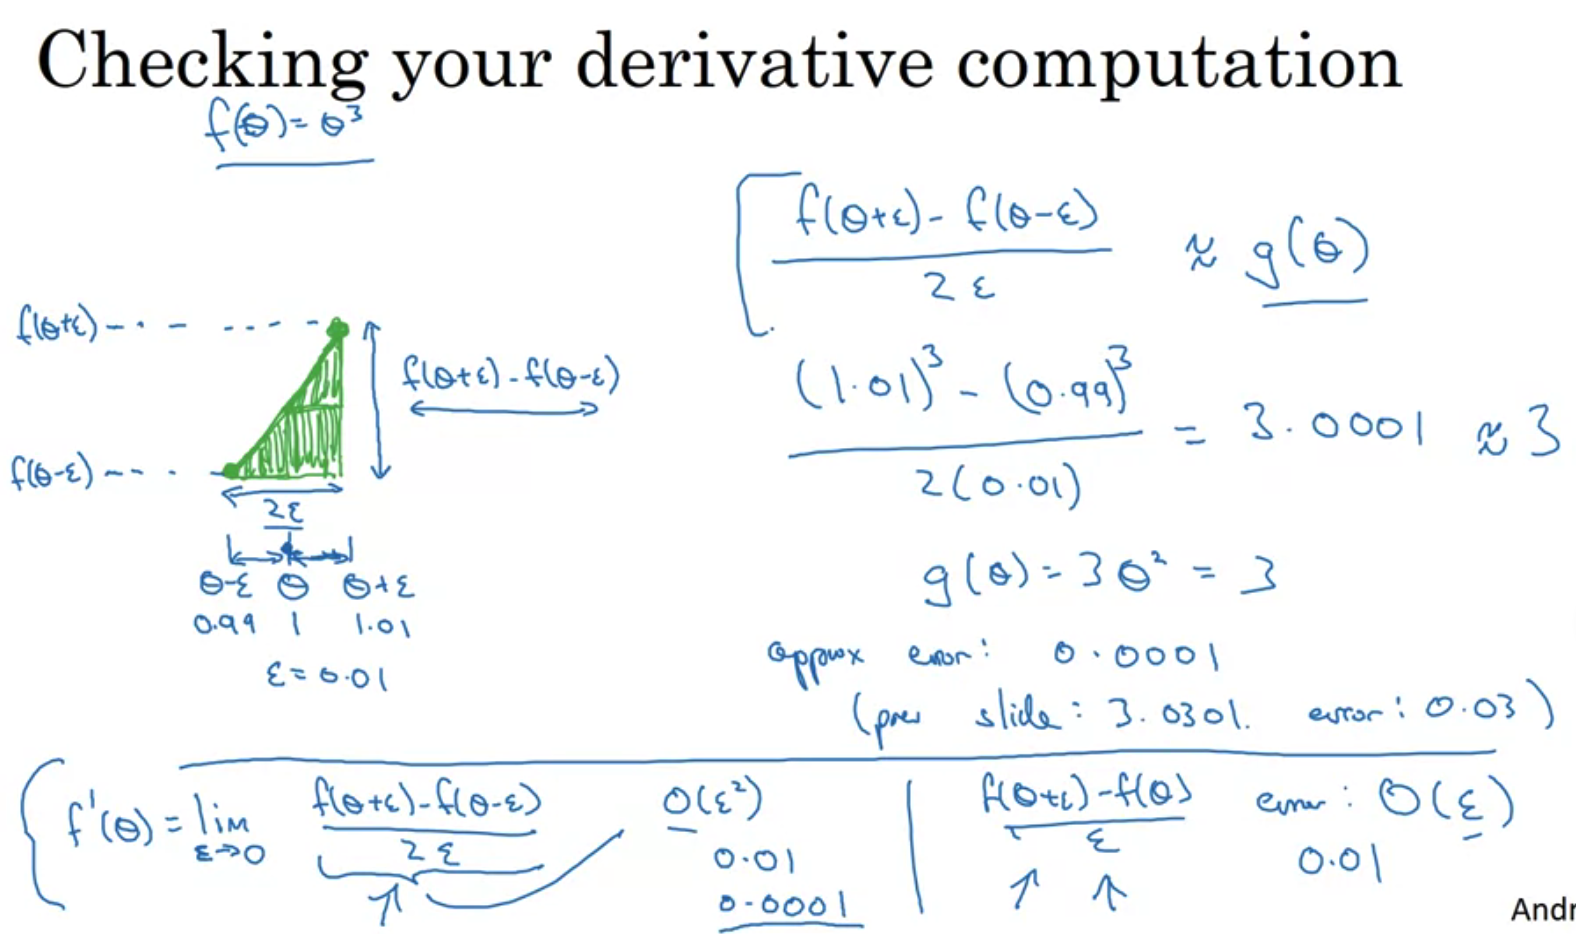 Checking your derivative computation
f(θ) = θ³
f(θ+ε) - f(θ-ε)
2ε
≈ g(θ)
f(θ+ε)
f(θ+ε) - f(θ-ε)
(1.01)³ - (0.99)³
2(0.01)
= 3.0001 ≈ 3
f(θ-ε)
2ε
θ-ε θ θ+ε
0.99 1 1.01
ε = 0.01
g(θ) = 3θ² = 3
approx error: 0.0001
(prev slide: 3.0301. error: 0.03)
f'(θ) = lim
ε→0
f(θ+ε) - f(θ-ε)
2ε
O(ε²)
0.01
0.0001
f(θ+ε) - f(θ)
ε
error: O(ε)
0.01
Andr